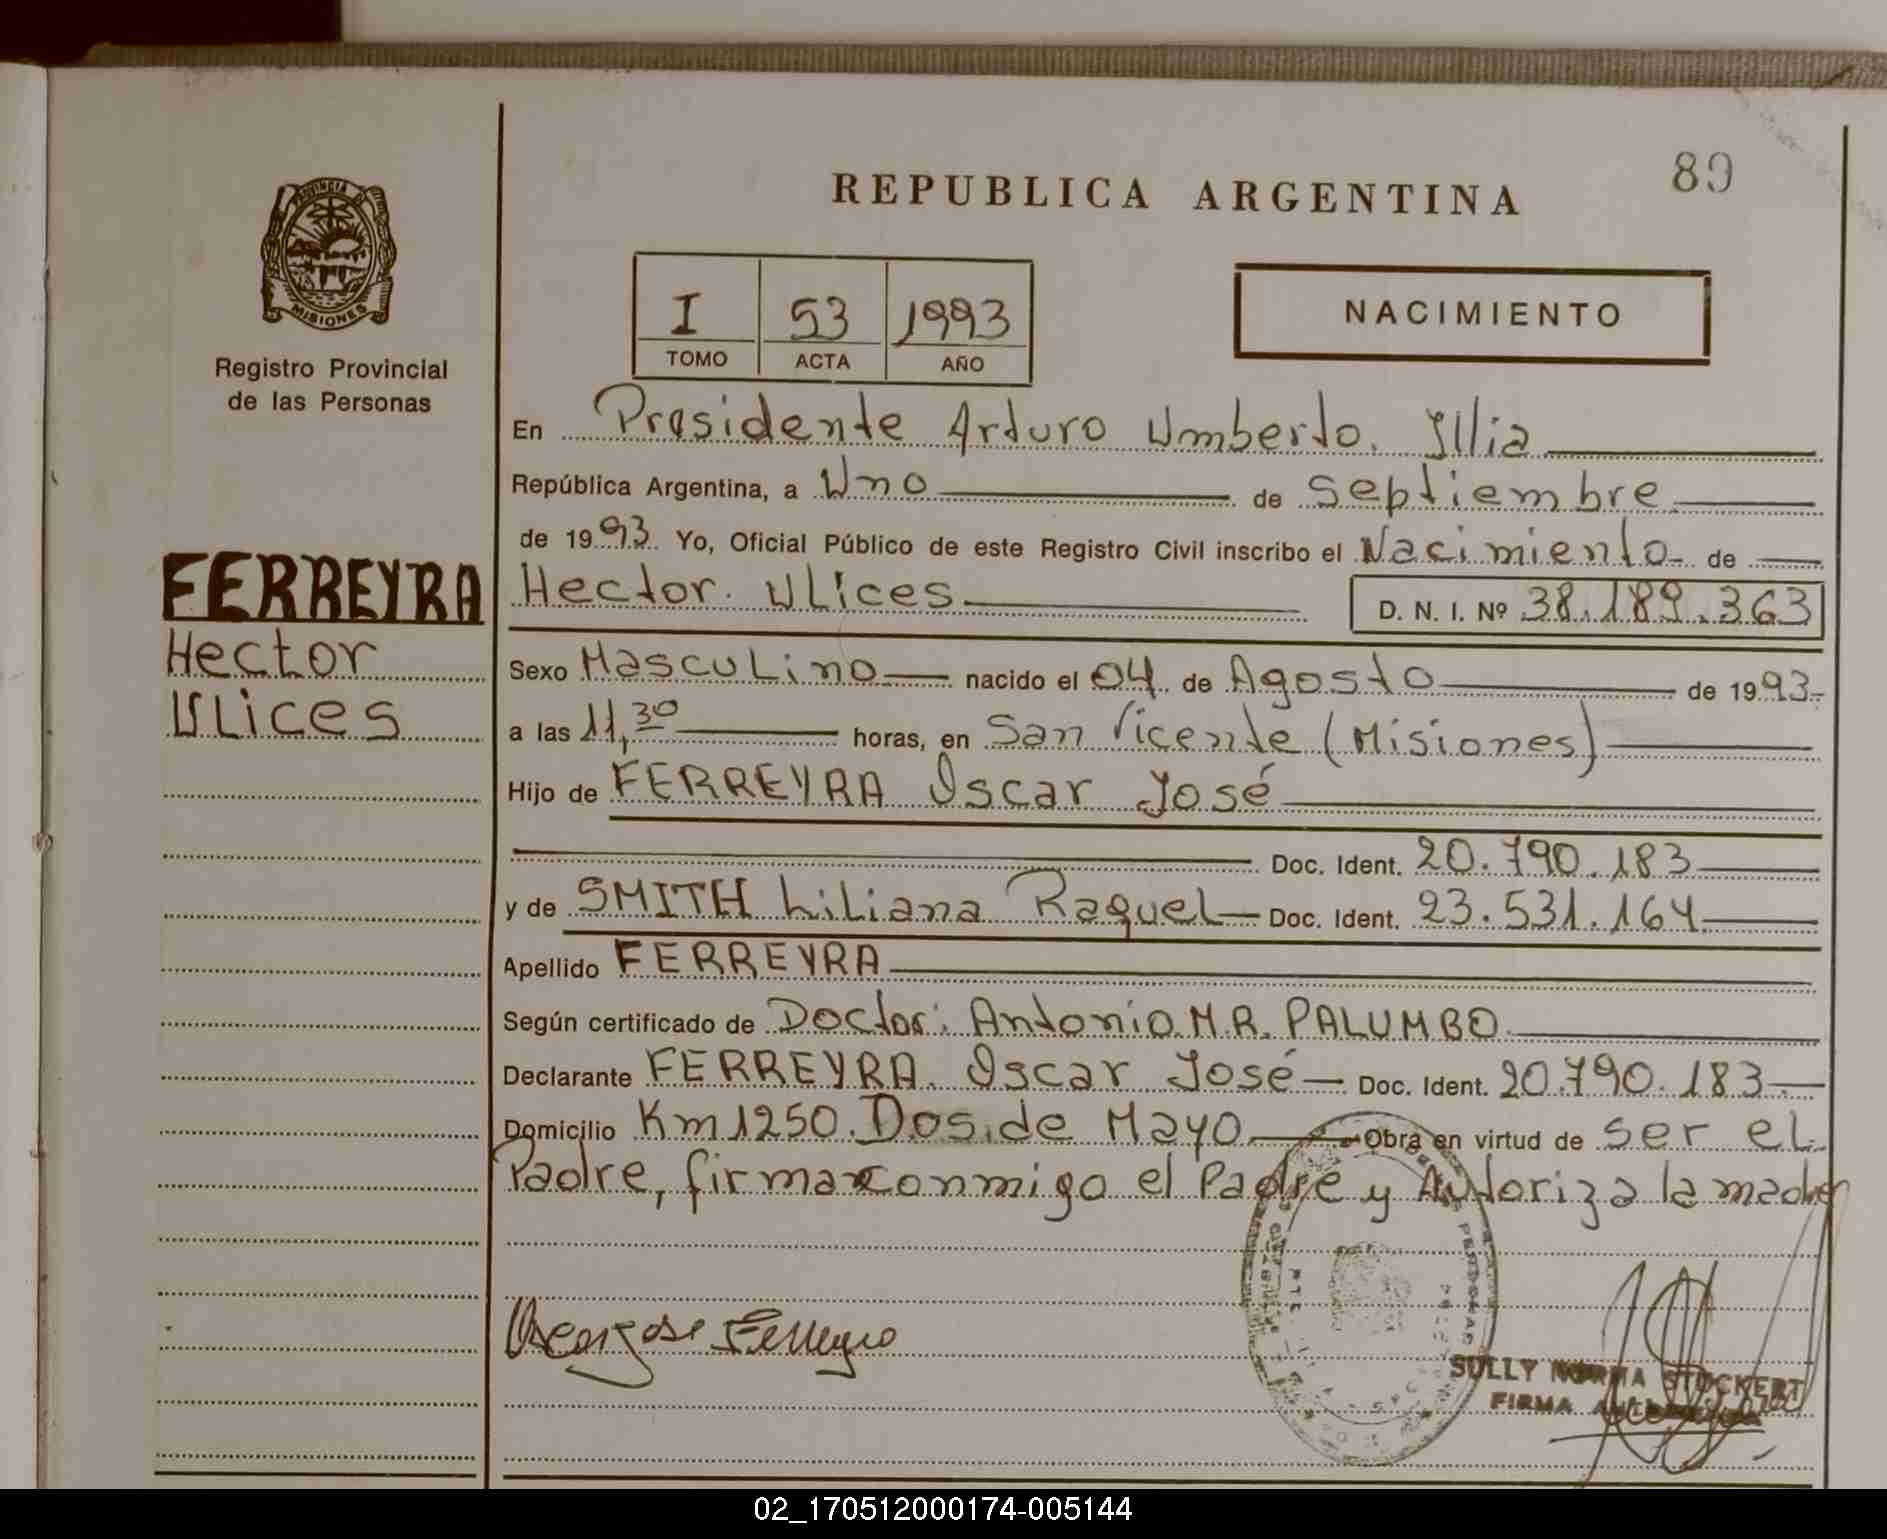 89
REPUBLICA ARGENTINA
PROVINCIA DE
MISIONES
Registro Provincial
de las Personas
I 53 1993
TOMO ACTA AÑO
NACIMIENTO
FERREYRA
Hector
Ulices
En Presidente Arturo Umberto. Illia
República Argentina, a Uno de septiembre
de 1993. Yo, Oficial Público de este Registro Civil inscribo el Nacimiento de
Hector. Ulices D. N. I. Nº 38.189.363
Sexo Masculino nacido el 04 de Agosto de 1993
a las 11,30 horas, en San Vicente (Misiones)
Hijo de FERREYRA Oscar José
Doc. Ident. 20.790.183
y de SMITH Liliana Raquel Doc. Ident. 23.531.164
Apellido FERREYRA
Según certificado de Doctor: Antonio M.R. PALUMBO
Declarante FERREYRA. Oscar José Doc. Ident. 20.790.183
Domicilio Km 1250. Dos de Mayo Obra en virtud de ser el
Padre, firma conmigo el Padre y Autoriza la madre
Oscar Jose Ferreyra
SULLY NORMA STOCKERT
FIRMA
02_170512000174-005144